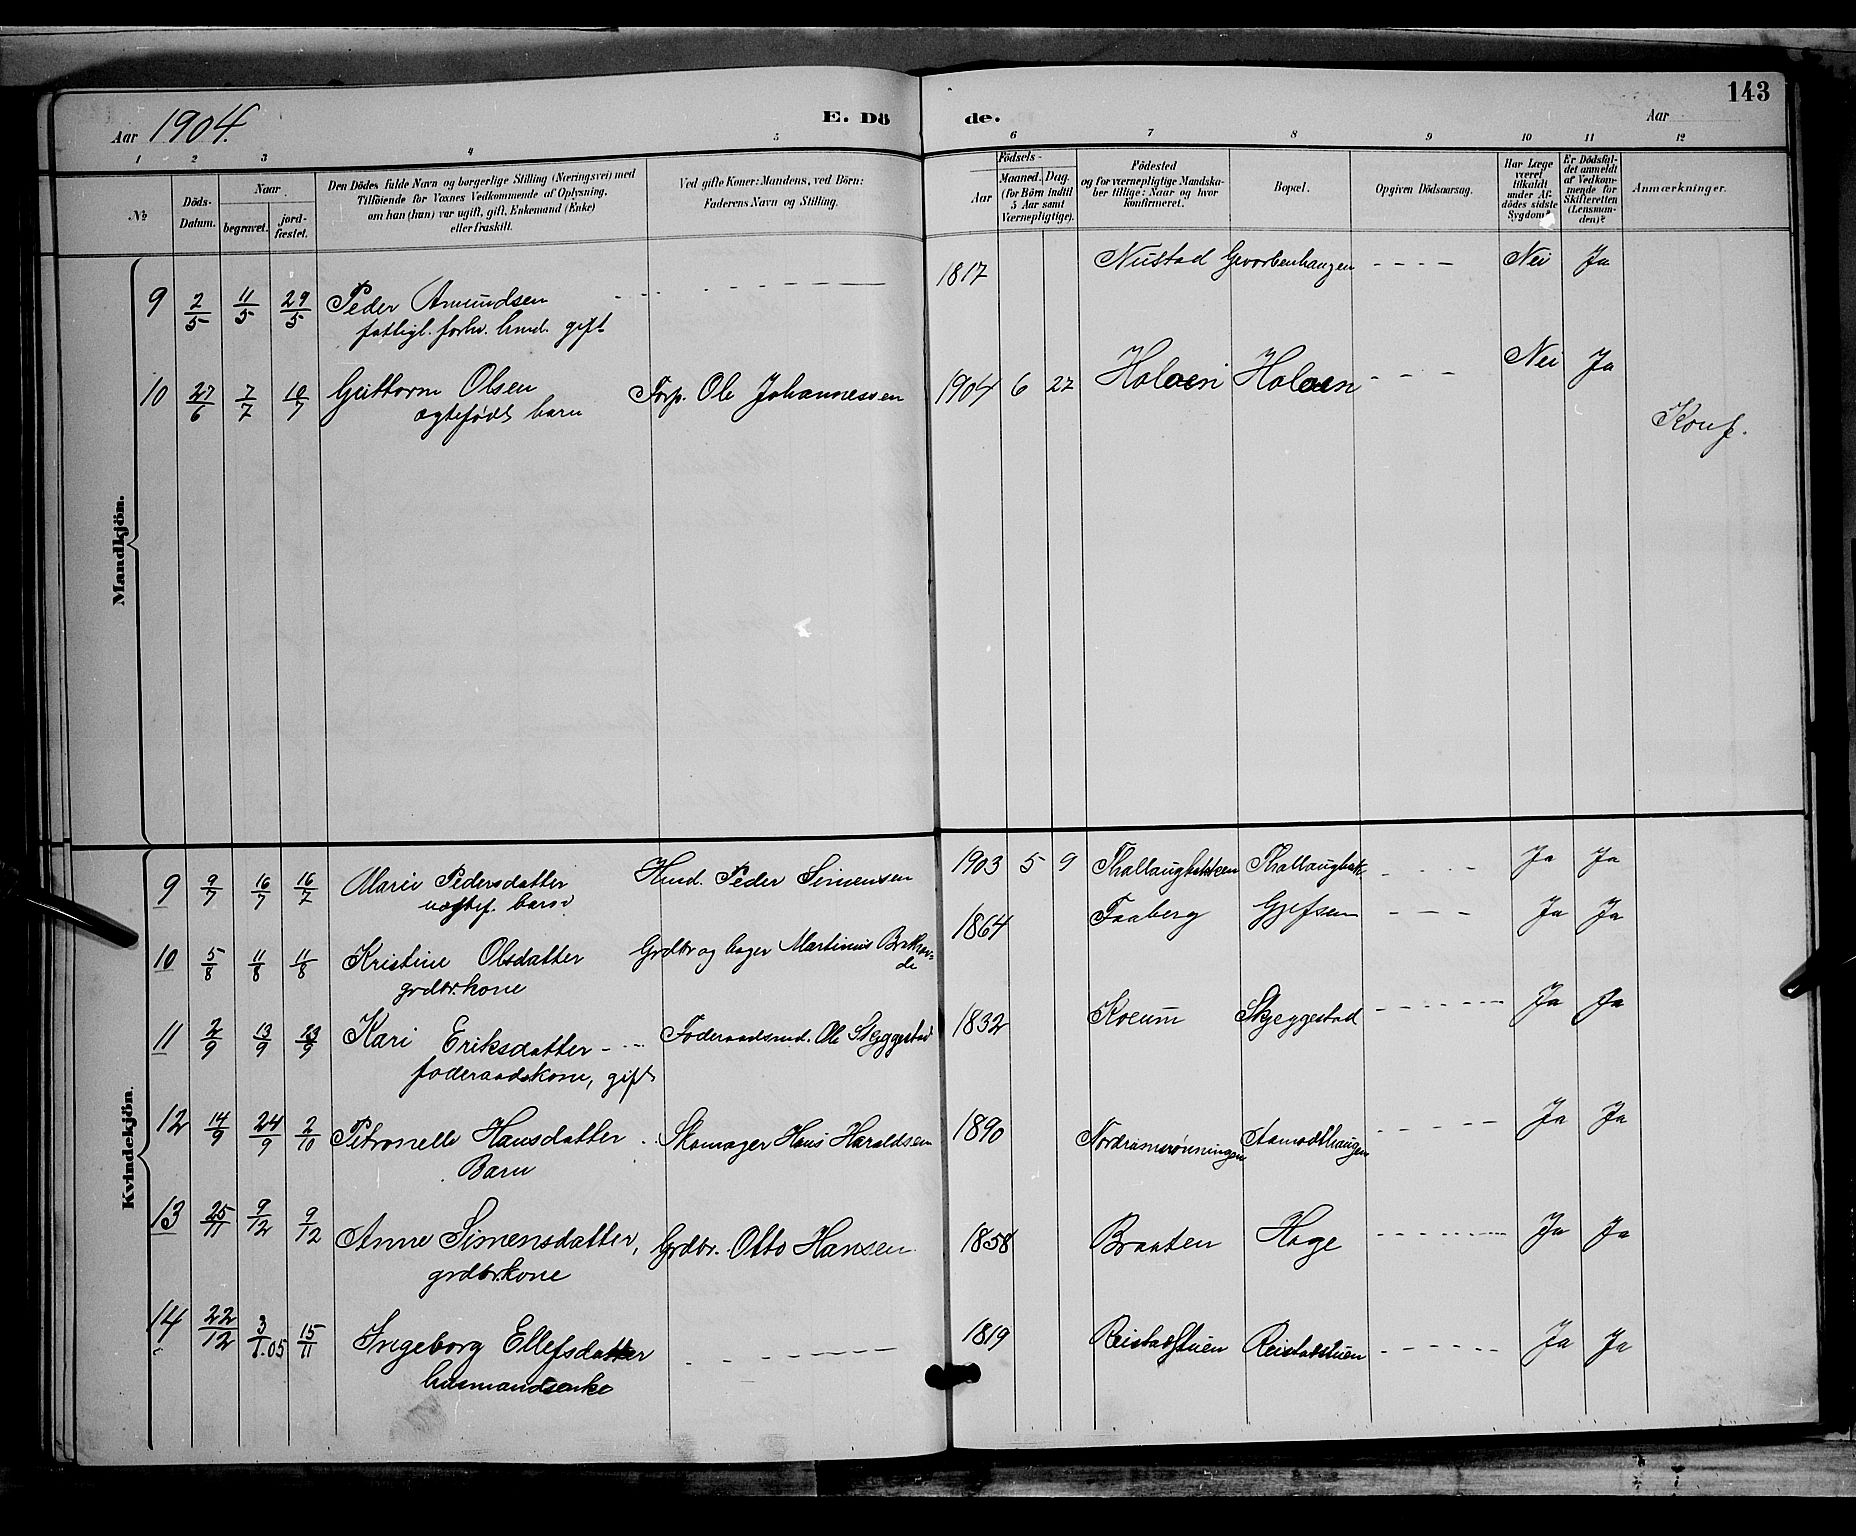 143
Aar 1904. E. Dö de. Aar
1 2 3 4 5 6 7 8 9 10 11 12
№ Döds-Datum. Naar begravet. jord-fæstet. Den Dödes fulde Navn og borgerlige Stilling (Næringsvei) med Tilföiende for Voxnes Vedkommende af Oplysning, om han (hun) var ugift, gift, Enkemand (Enke) eller fraskilt. Ved gifte Koner: Mandens, ved Börn: Faderens Navn og Stilling. Födsels- Aar Maaned. Dag. (for Börn indtil 5 Aar samt Værnepligtige). Födested og for værnepligtige Mandska-ber tillige: Naar og hvor konfirmeret. Bopæl. Opgiven Dödsaarsag. Har Læge været tilkaldt under Af-dödes sidste Sygdom? Er Dödsfal-det anmeldt af Vedkom-mende for Skifteretten (Lensman-den)? Anmærkninger.
Mandkjön.
9 2/5 11/5 29/5 Peder Amundsen - - - - - 1817 Nustad - - - - Nei Ja
fattigl. forhv. hmd. gift
10 27/6 7/7 10/7 Guttorm Olsen Forp. Ole Johannessen 1904 6 27 Holoen Holoen - - - Nei Ja
ægtefødt barn
Konf.
Kvindekjön.
9 9/7 16/7 16/7 Marie Pedersdatter Hmd. Peder Simensen 1903 5 9 - - - - Ja Ja
uægtef. barn
10 5/8 11/8 11/8 Kristine Olsdatter Grdbr og bager Martinus 1864 Faaberg Gjefsen - - - Ja Ja
grdbr.kone
11 2/9 13/9 Kari Eriksdatter - - - Foderaadsmd. Ole Skjeggestad 1832 Skjeggestad - - - - - - Ja Ja
foderaadskone, gift
12 14/9 24/9 2/10 Petronelle Hansdatter Skomager Hans Haraldsen 1890 Nordramsrønningen Aamodthaugen - - - - - Ja Ja
Barn
13 25/11 9/12 9/12 Anne Simensdatter, Grdbr. Otto Hansen 1858 Braaten Hage - - - - - - Ja Ja
grdbr.kone
14 22/12 3/1.05 15/11 Ingeborg Ellefsdatter - - - - - 1819 Reistadstuen Reistadstuen - - - - - Ja Ja
husmandsenke